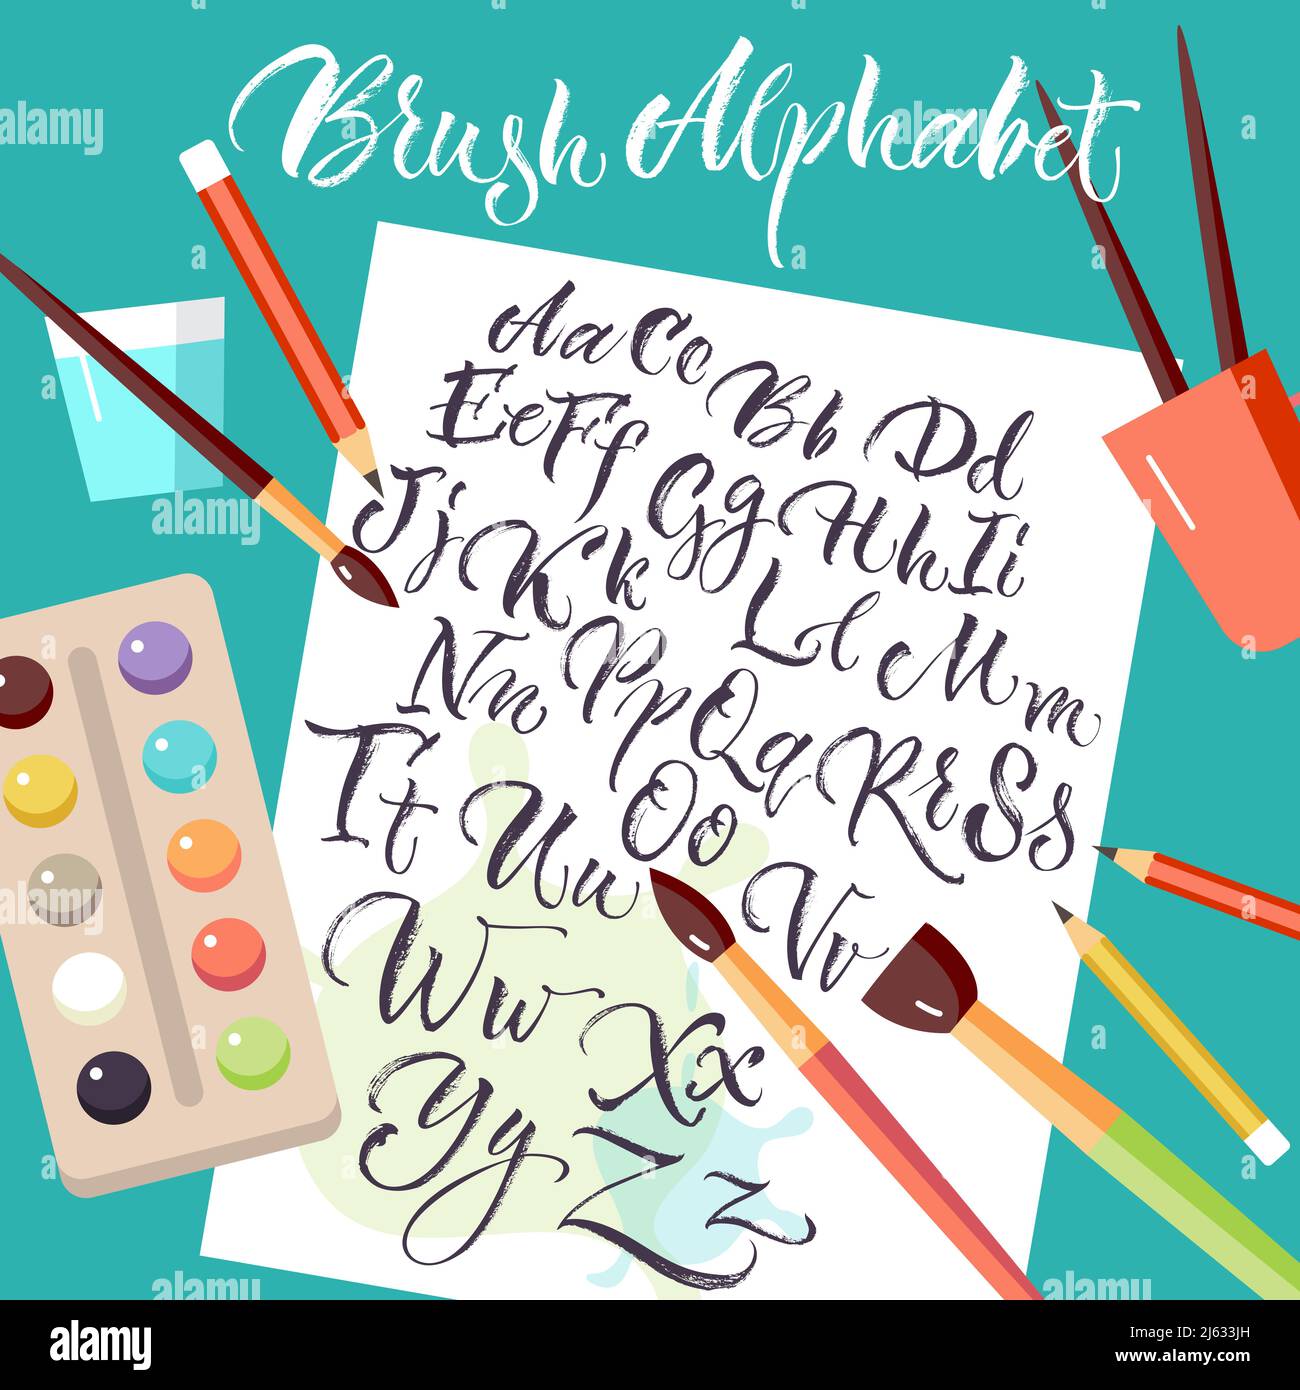 Brush Alphabet
Aa Cc Bb Dd
Ee Ff Gg Hh Ii
Jj Kk Ll Mm
Nn Pp Qq Rr Ss
Tt Uu Oo Vv
Ww Xx
Yy Zz
alamy
Image ID: 2J633JH
www.alamy.com